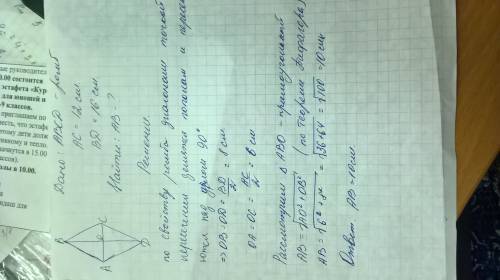 Дано: ABCD - ромб
AC = 12 см
BD = 16 см.
Найти: AB = ?
Решение
по свойству ромба диагонали точкой
пересечения делятся пополам и пересек
аются под углом 90°
=> OB = OD = BD/2 = 8 см
OA = OC = AC/2 = 6 см
Рассмотрим Δ ABO - прямоугольный
AB = √AO² + OB² (по теореме Пифагора)
AB = √6² + 8² = √36+64 = √100 = 10 см
Ответ AB = 10 см
B
C
O
A
D
руководител
0.00 состоится
эстафета «Кур
для юношей и
9 классов.
приглашаем по
эстаф
этому дети долж
тивному и тепло.
начнутся в 15.00
ассов).
в 10.00.